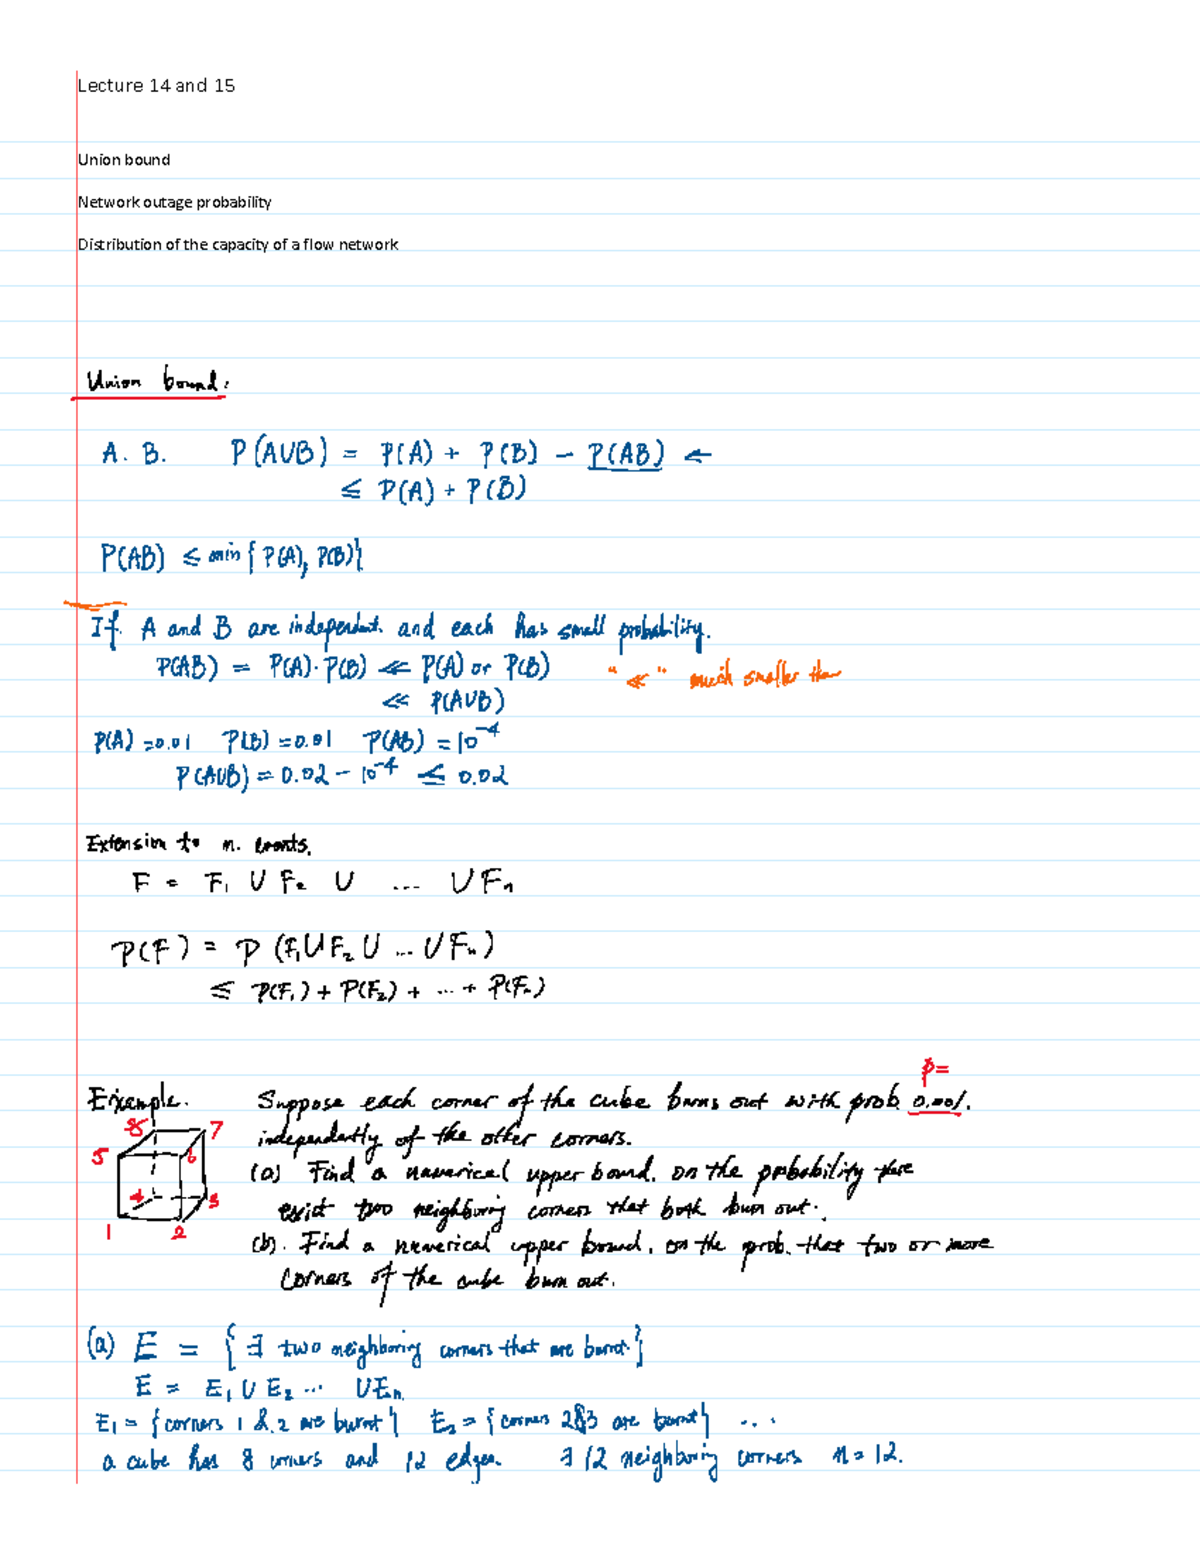 Lecture 14 and 15
Union bound
Network outage probability
Distribution of the capacity of a flow network
Union bound:
A. B. P(A∪B) = P(A) + P(B) − P(AB) ←
≤ P(A) + P(B)
P(AB) ≤ min{P(A), P(B)}
If A and B are independent and each has small probability.
P(AB) = P(A)·P(B) ≪ P(A) or P(B) "≪" much smaller than
≪ P(A∪B)
P(A) = 0.01 P(B) = 0.01 P(AB) = 10⁻⁴
P(A∪B) = 0.02 − 10⁻⁴ ≤ 0.02
Extension to n. events.
F = F₁ ∪ F₂ ∪ ... ∪ Fₙ
P(F) = P(F₁∪F₂∪ ... ∪Fₙ)
≤ P(F₁) + P(F₂) + ... + P(Fₙ)
p=
Example. Suppose each corner of the cube burns out with prob 0.001.
8 7 independently of the other corners.
5 6 (a) Find a numerical upper bound. on the probability there
4 3 exist two neighboring corners that both burn out.
1 2 (b). Find a numerical upper bound. on the prob. that two or more
corners of the cube burn out.
(a) E = {∃ two neighboring corners that are burnt}
E = E₁ ∪ E₂ ... ∪Eₙ
E₁ = {corners 1 & 2 are burnt} E₂ = {corners 2&3 are burnt} ...
a cube has 8 corners and 12 edges. ∃ 12 neighboring corners n = 12.